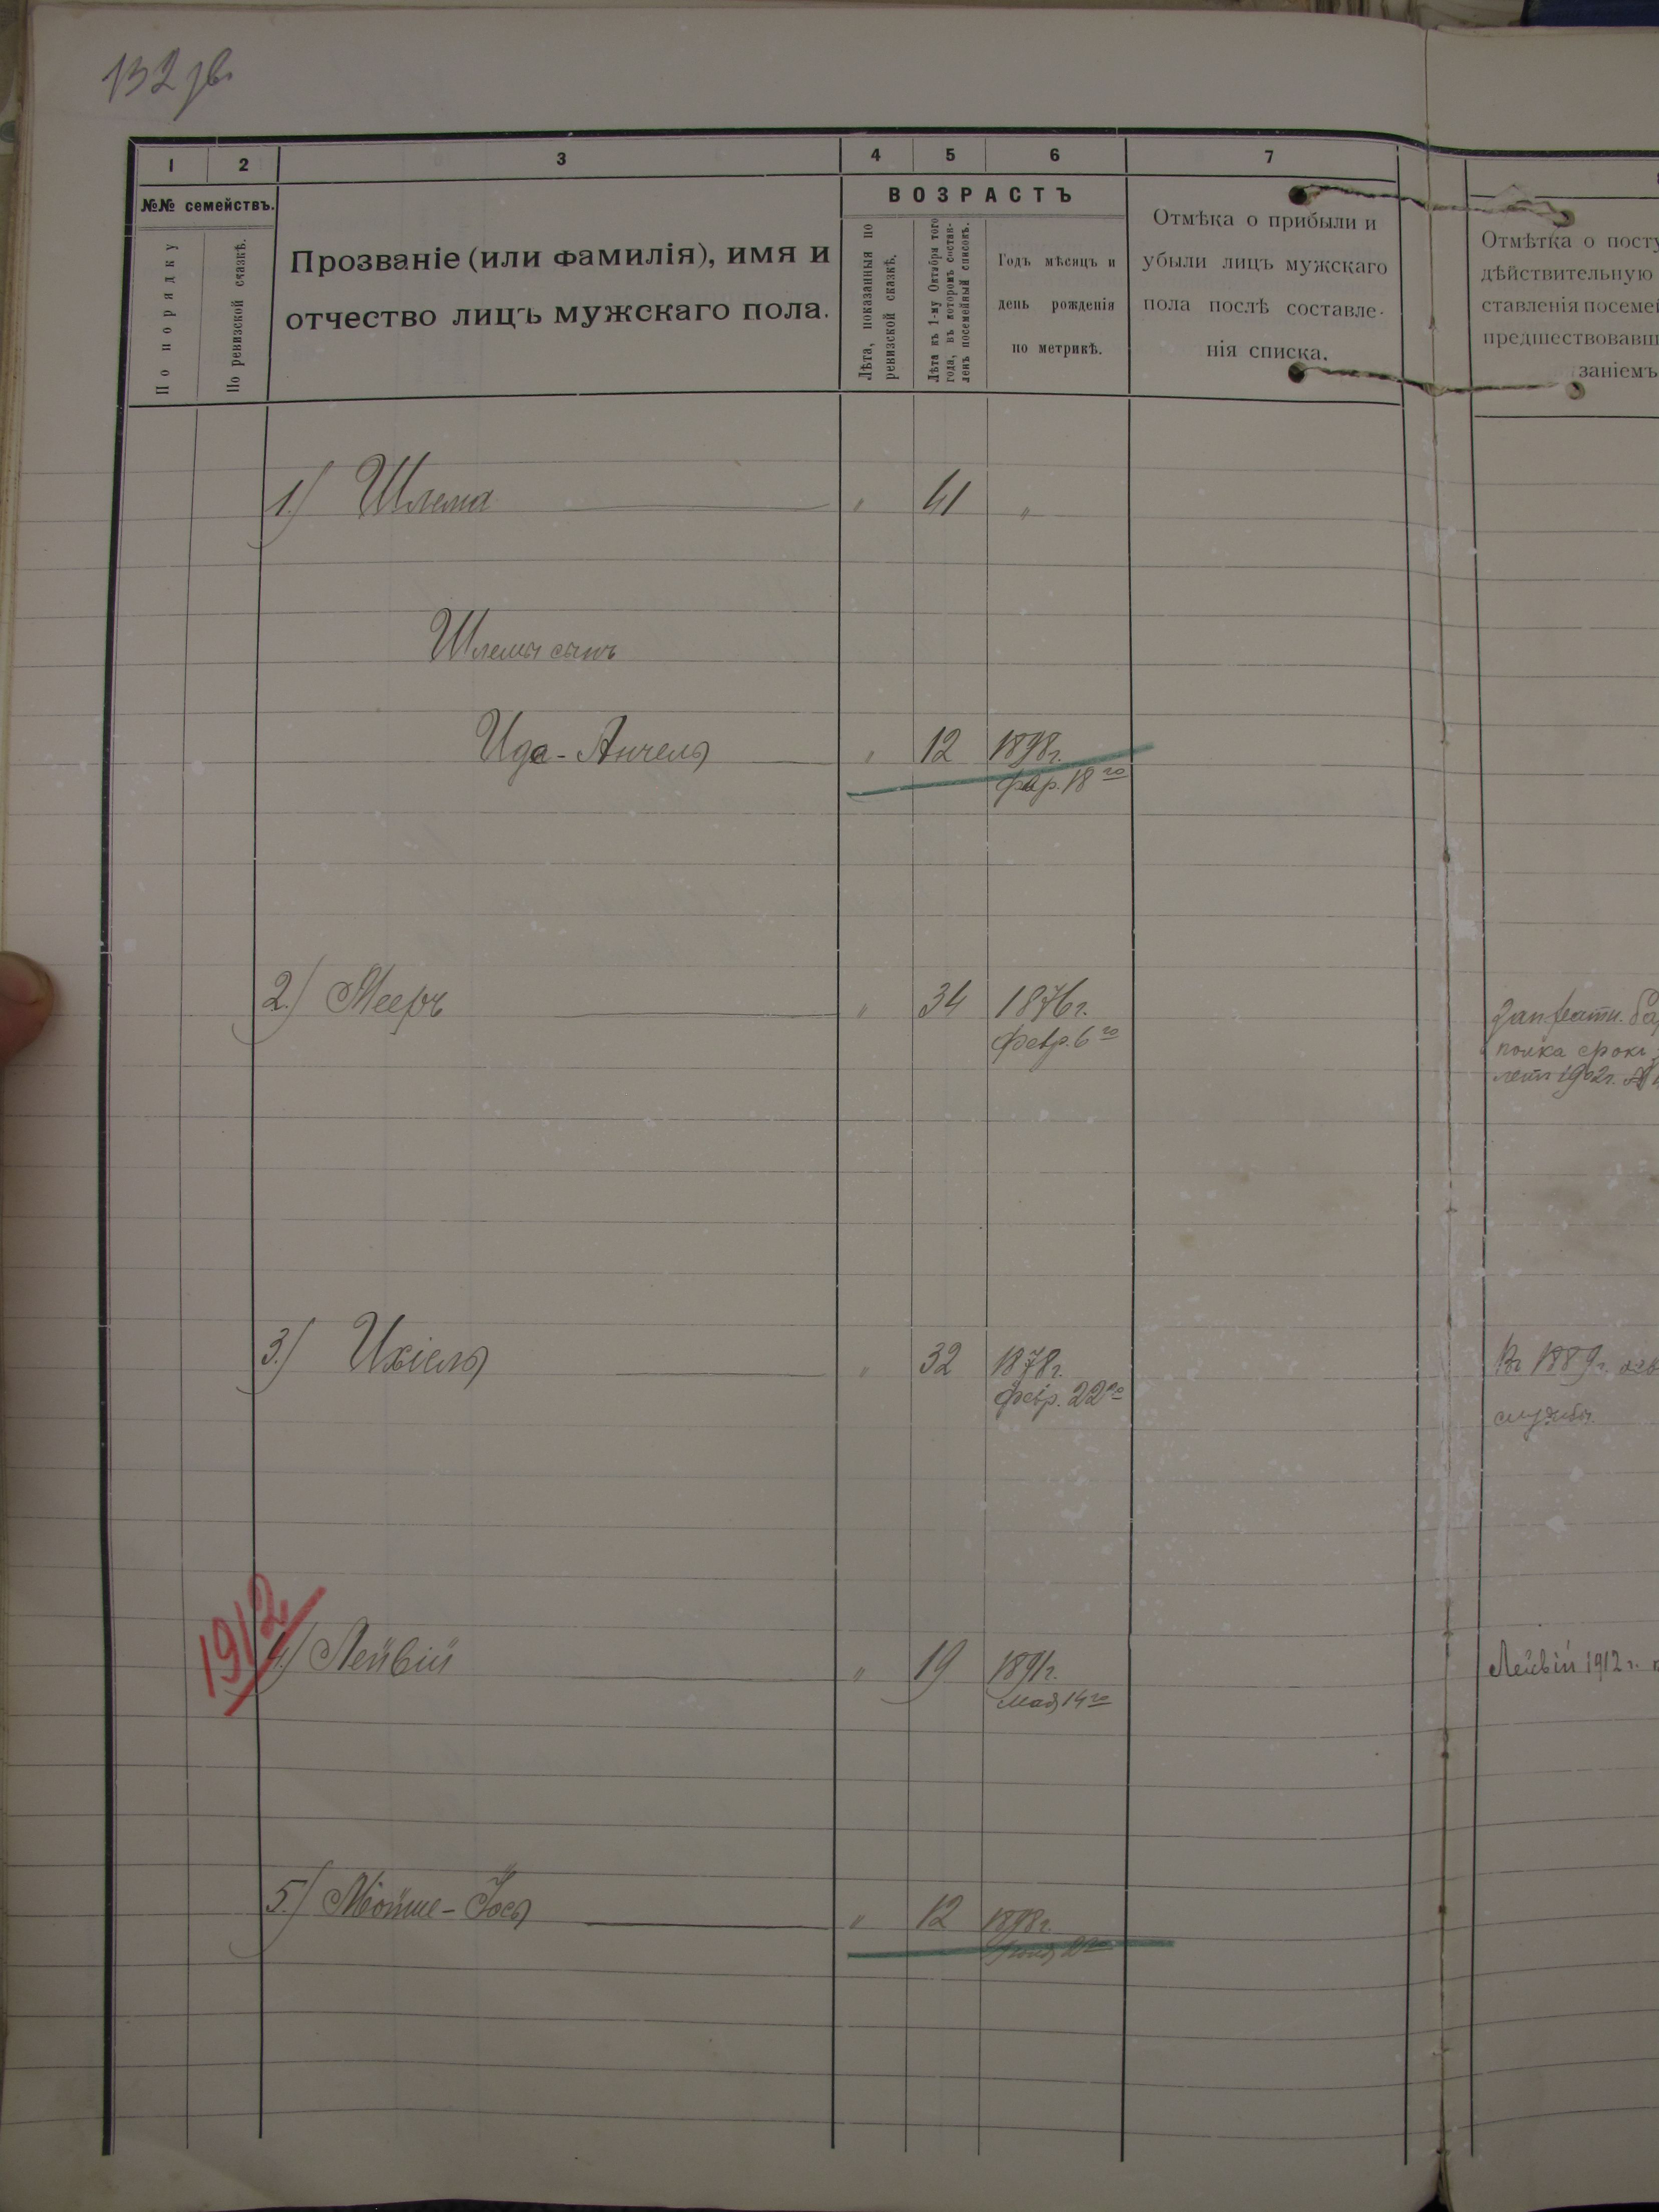 132
1 2 3 4 5 6 7
№№ семействъ.
По порядку
По ревизской сказкѣ.
Прозваніе (или фамилія), имя и
отчество лицъ мужскаго пола.
ВОЗРАСТЪ
Лѣта, показанныя по
ревизской сказкѣ.
Лѣта къ 1-му Октября того
года, въ которомъ состав-
ленъ посемейный списокъ.
Годъ мѣсяцъ и
день рожденія
по метрикѣ.
Отмѣка о прибыли и
убыли лицъ мужскаго
пола послѣ составле-
нія списка.
Отмѣтка о посту
дѣйствительную
ставленія посеме
предшествовавш
заніемъ
1.) Шлема " 41 "
Шлемы сынъ
Ида-Анчель " 12 1898г.
18го
2.) Мееръ " 34 1876г.
февр. 6го
полка срокъ
1902г.
3.) Ихіель " 32 1878г.
февр. 22го
Въ 1889г.
службы.
1912
4.) Лейвій " 19 1891г.
мая 14го
Лейвій 1912 г.
5.) Мотше-Іось " 12 1898г.